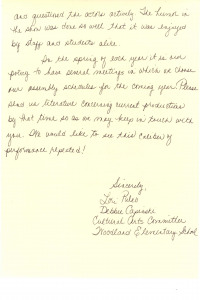 and questioned the actors actively. The humor in
the show was done so well that it was enjoyed
by staff and students alike.
In the spring of each year it is our
policy to have several meetings in which we choose
our assembly schedules for the coming year. Please
send us literature concerning current productions
by that time so as we may keep in touch with
you. We would like to see this caliber of
performance repeated!
Sincerely,
Lori
Debbie
Cultural Arts Committee
Woodland Elementary School